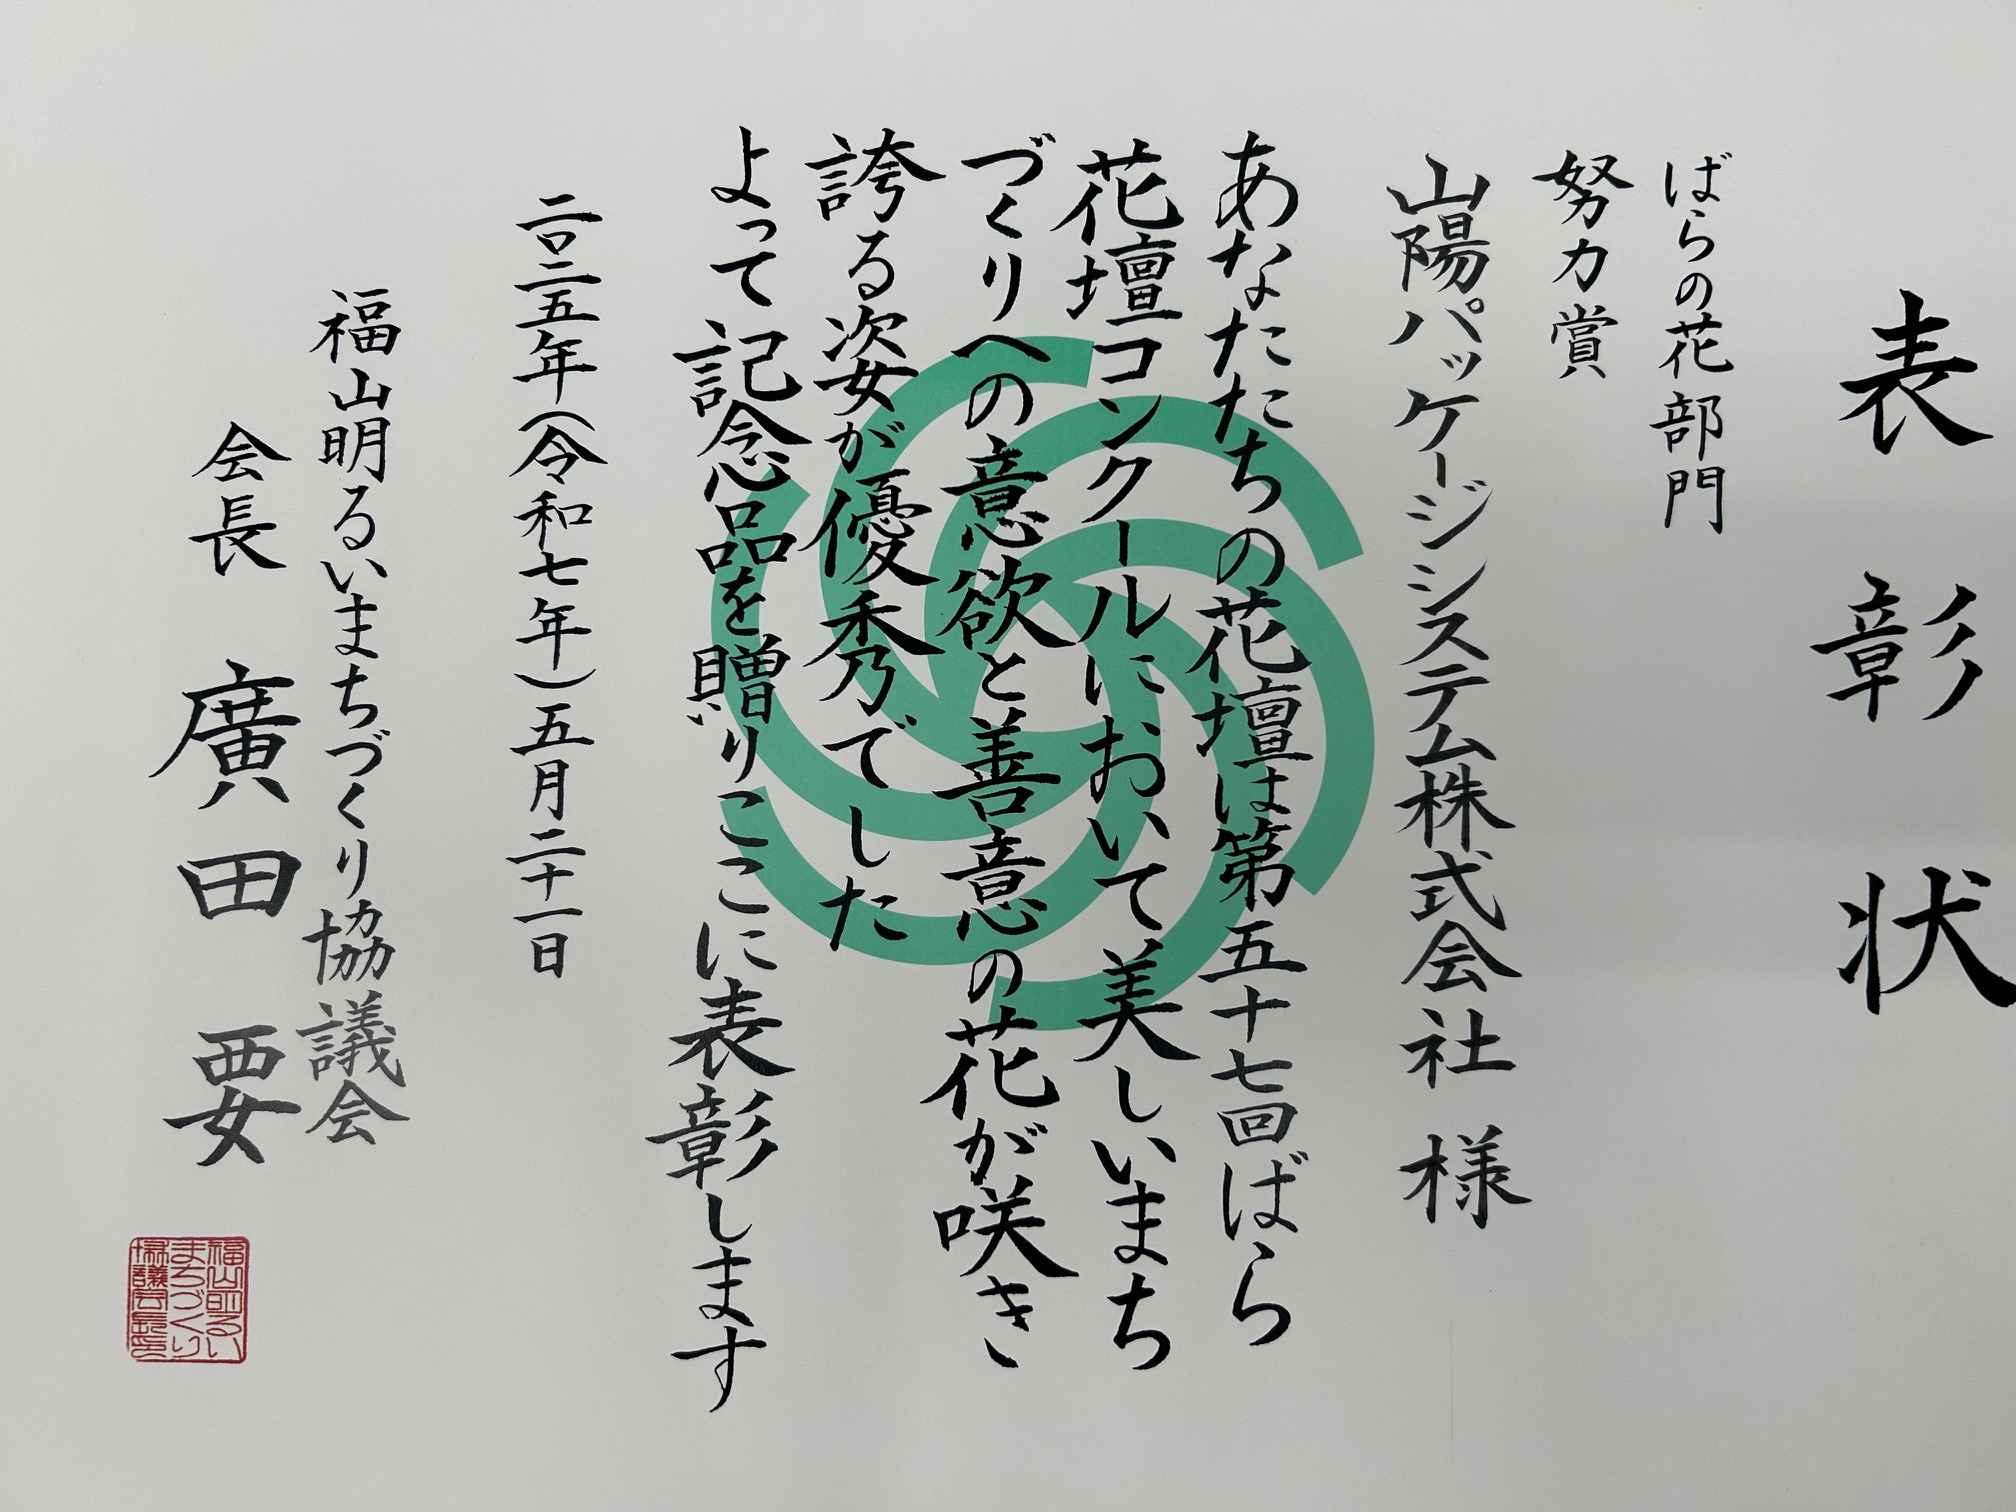 表彰状
ばらの花部門
努力賞
山陽パッケージシステム株式会社 様
あなたたちの花壇は第五十七回ばら
花壇コンクールにおいて美しいまち
づくりへの意欲と善意の花が咲き
誇る姿が優秀でした
よって記念品を贈りここに表彰します
二〇二五年(令和七年)五月二十一日
福山明るいまちづくり協議会
会長 廣田 要
福山明るい
まちづくり
協議会長印